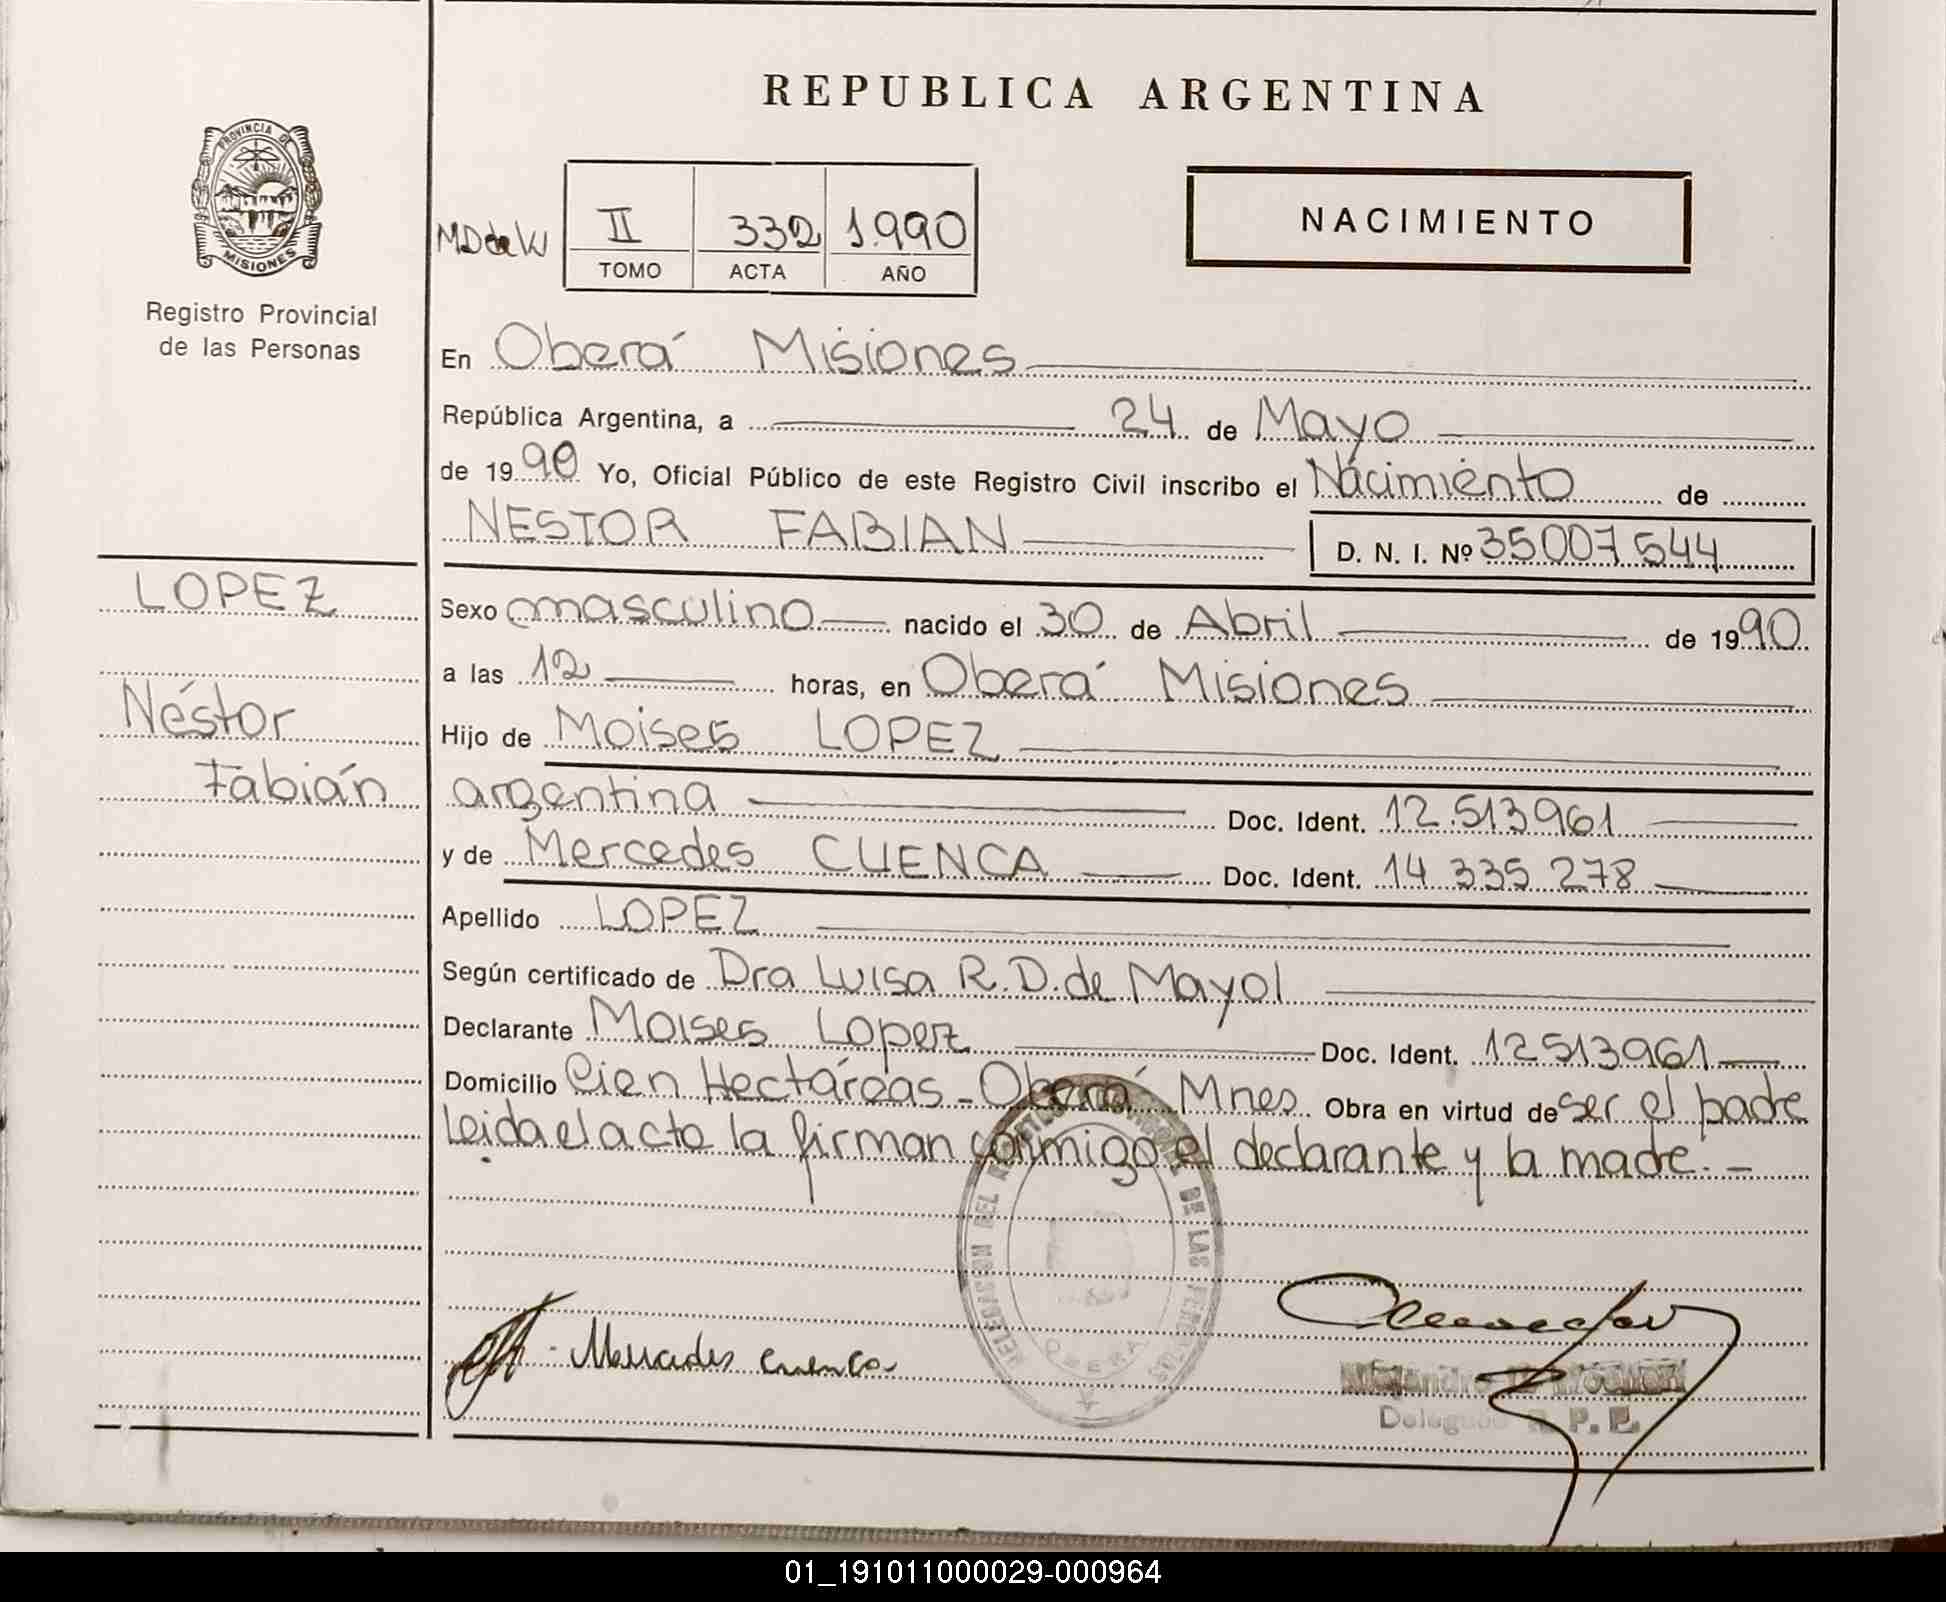 REPUBLICA ARGENTINA
PROVINCIA DE MISIONES
Registro Provincial
de las Personas
MD de W
II 332 1.990
TOMO ACTA AÑO
NACIMIENTO
En Oberá Misiones
República Argentina, a 24 de Mayo
de 1990 Yo, Oficial Público de este Registro Civil inscribo el Nacimiento de
NESTOR FABIAN D. N. I. Nº 35.007.544
LOPEZ
Néstor
Fabián
Sexo masculino nacido el 30 de Abril de 1990
a las 12 horas, en Oberá Misiones
Hijo de Moises LOPEZ
argentina Doc. Ident. 12.513961
y de Mercedes CUENCA Doc. Ident. 14 335 278
Apellido LOPEZ
Según certificado de Dra Luisa R.D. de Mayol
Declarante Moises Lopez Doc. Ident. 12513961
Domicilio Cien Hectáreas - Oberá Mnes Obra en virtud de ser el padre
Leida el acta la firman conmigo el declarante y la madre. -
DELEGACION DEL DE LAS PERSONAS
OBERA
Mercedes Cuenca
Alejandro
Delegado R. P. P.
01_191011000029-000964